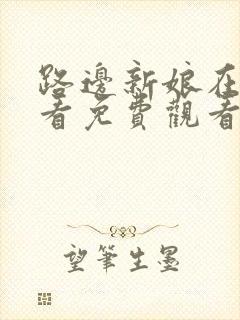 路邊新娘在
看免費觀看
望筆生墨